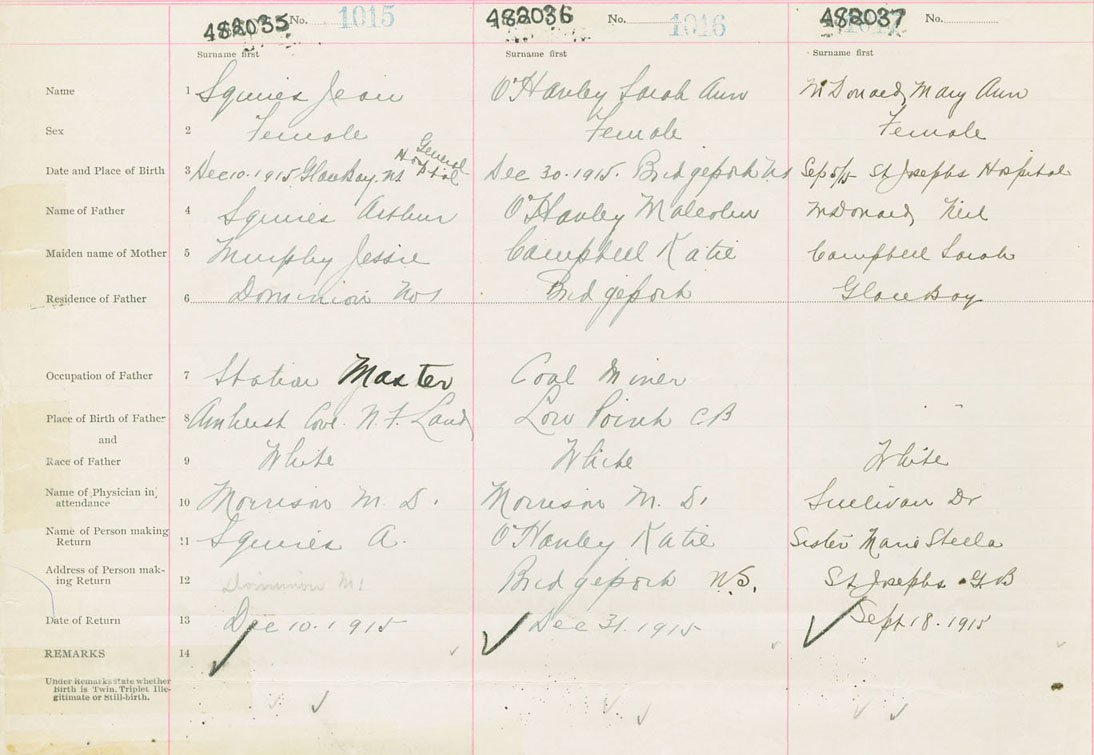 482035 No. 1015 482036 No. 1016 482037 No.
Surname first Surname first Surname first
Name 1 Squires Jean O'Hanley Sarah Ann McDonald, Mary Ann
Sex 2 Female Female Female
General
Hospital
Date and Place of Birth 3 Dec 10. 1915 Glace Bay. NS Dec 30. 1915. Bridgeport NS Sep 5/15 St Josephs Hospital
Name of Father 4 Squires Arthur O'Hanley Malcolm McDonald, Neil
Maiden name of Mother 5 Murphy Jessie Campbell Katie Campbell Sarah
Residence of Father 6 Dominion No 1 Bridgeport Glace Bay
Occupation of Father 7 Station Master Coal Miner
Place of Birth of Father 8 Amherst Cove. N. F. Land Low Point CB
and
Race of Father 9 White White White
Name of Physician in
attendance 10 Morrison M. D. Morrison M. D. Sullivan Dr
Name of Person making
Return 11 Squires A. O'Hanley Katie Sister Marie Stella
Address of Person mak-
ing Return 12 Dominion No 1 Bridgeport N.S. St Josephs G B
Date of Return 13 Dec 10. 1915 Dec 31. 1915 Sept 18. 1915
REMARKS 14
Under Remarks state whether
Birth is Twin. Triplet Ille-
gitimate or Still-birth.